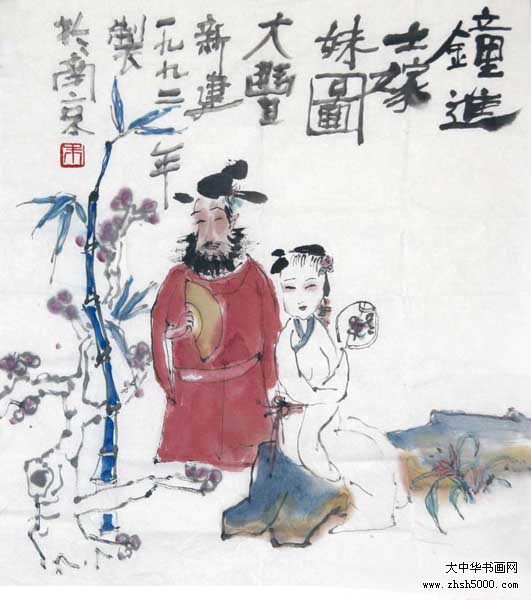 鐘進
士嫁
妹圖
大豐
新建
一九九二年
製
於南京
朱
大中华书画网
www.zhsh5000.com